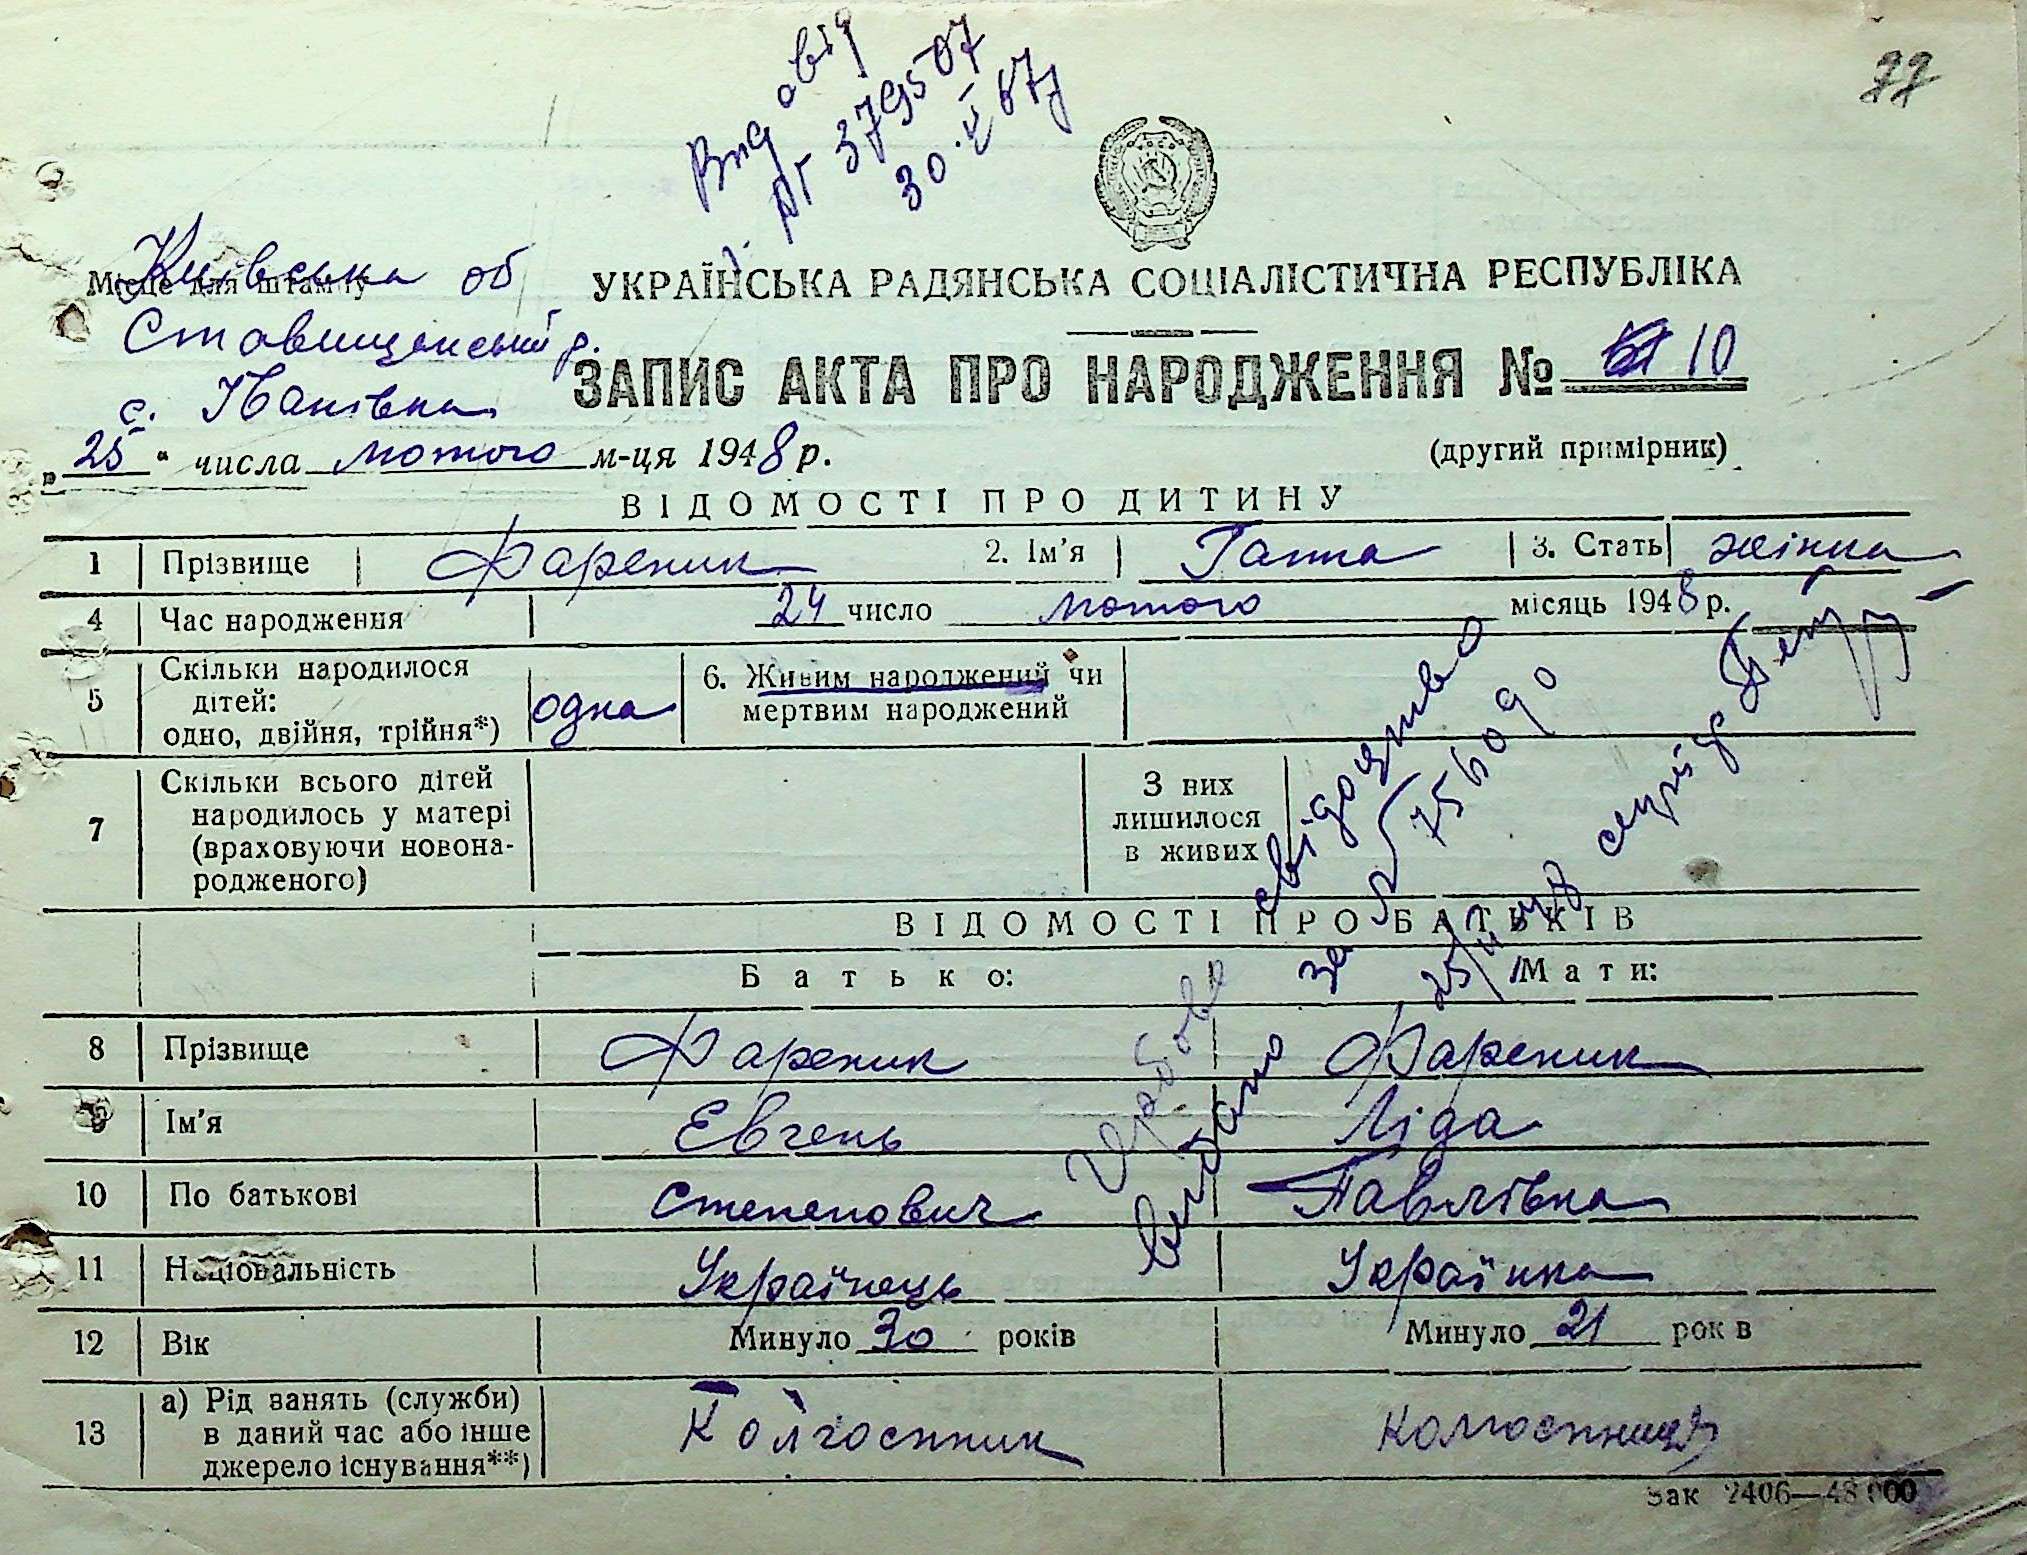 22
Вид
379507
30.
67
Київська об
Місце для штампу
УКРАЇНСЬКА РАДЯНСЬКА СОЦІАЛІСТИЧНА РЕСПУБЛІКА
Ставищенський р.
с. Іванівка
ЗАПИС АКТА ПРО НАРОДЖЕННЯ № 10
„25“ числа лютого м-ця 1948 р.
(другий примірник)
ВІДОМОСТІ ПРО ДИТИНУ
1 Прізвище Фареник 2. Ім'я Ганна 3. Стать жінка
4 Час народження 24 число лютого місяць 1948 р.
5 Скільки народилося дітей: одно, двійня, трійня*) одна 6. Живим народжений чи мертвим народжений
7 Скільки всього дітей народилось у матері (враховуючи новонародженого) З них лишилося в живих
видано свідоцтво
за 756090
25/
ВІДОМОСТІ ПРО БАТЬКІВ
Батько: Мати:
8 Прізвище Фареник Фареник
9 Ім'я Евгень Ліда
10 По батькові Степенович Павлівна
11 Національність Українець Українка
12 Вік Минуло 30 років Минуло 21 рок в
13 а) Рід занять (служби) в даний час або інше джерело існування**) Колгоспник колгоспниця
Зак 2406—48 000